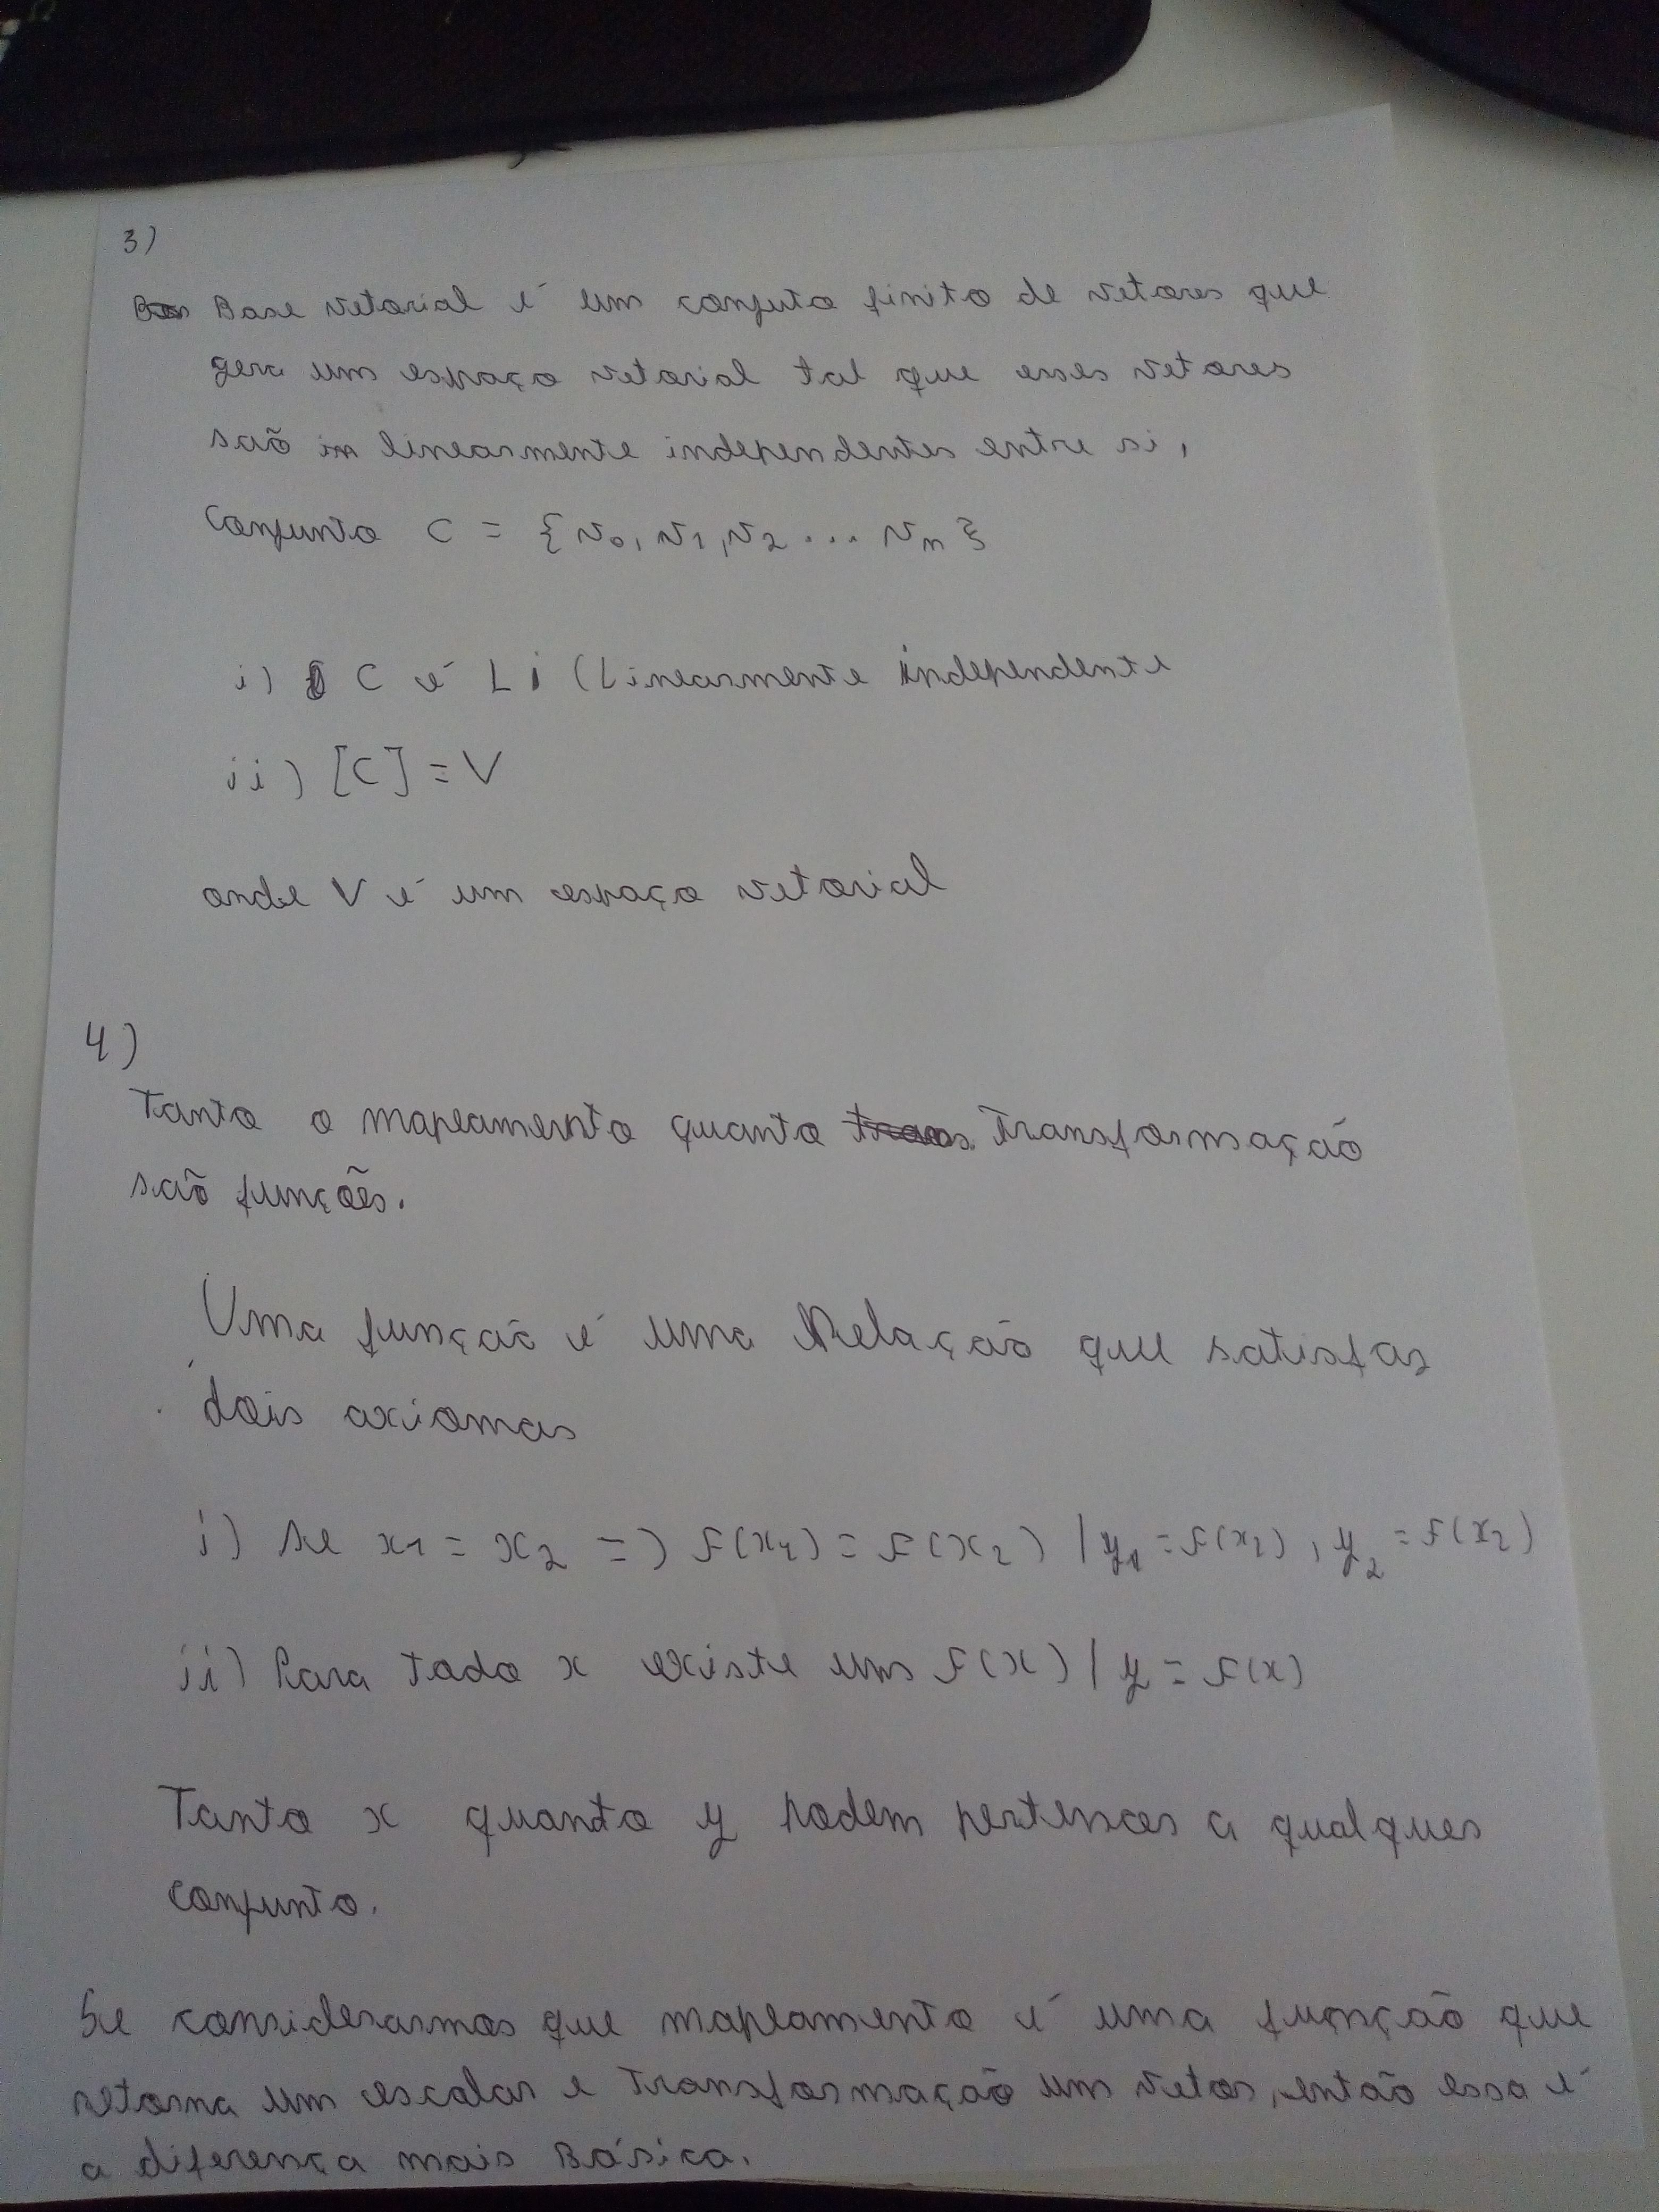 3)
Base vetorial é um conjuto finito de vetores que
gera um espaço vetorial tal que esses vetores
são linearmente independentes entre si,
Conjunto C = {v₀, v₁, v₂ ... vₙ}
i) C é LI (Linearmente independente
ii) [C] = V
onde V é um espaço vetorial
4)
Tanto o mapeamento quanto Transformação
são funções.
Uma função é uma Relação que satisfaz
dois axiomas
i) Se x₁ = x₂ => F(x₁) = F(x₂) / y₁ = F(x₂), y₂ = F(x₂)
ii) Para todo x existe um F(x) / y = F(x)
Tanto x quanto y podem pertencer a qualquer
conjunto.
Se considerarmos que mapeamento é uma função que
retorna um escalar e Transformação um vetor, então essa é
a diferença mais Básica.